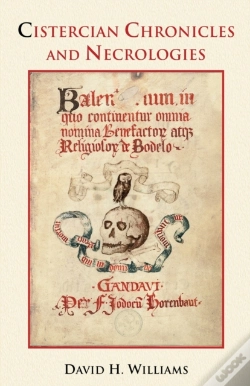 CISTERCIAN CHRONICLES
AND NECROLOGIES
in
quo continentur omnia
nomina Benefactor atqz
Religiosor de Bodelo
GANDAVI
Per F. Jodocu Horenbaut
DAVID H. WILLIAMS
wook